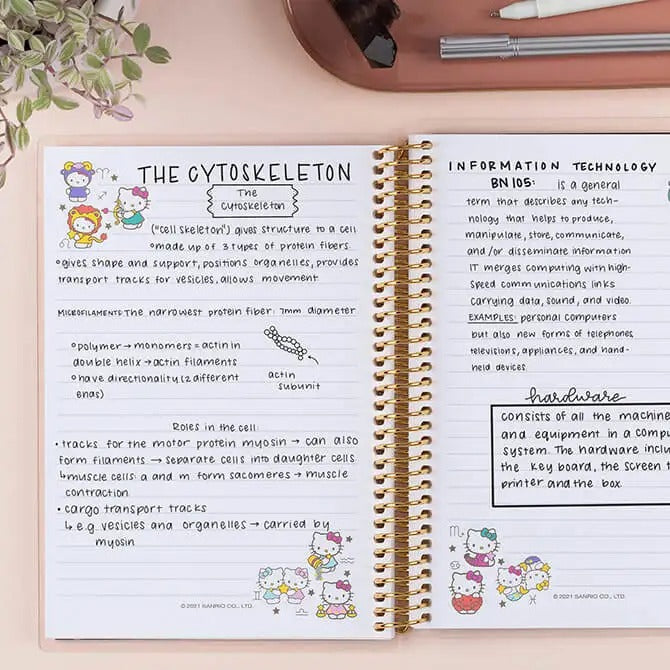 THE CYTOSKELETON
The
cytoskeleton
("cell skeleton") gives structure to a cell
°made up of 3 types of protein fibers.
°gives shape and support, positions organelles, provides
transport tracks for vesicles, allows movement.
MICROFILAMENTS: The narrowest protein fiber: 7mm diameter
°polymer → monomers = actin in
double helix → actin filaments
°have directionality (2 different
ends)
actin
subunit
Roles in the cell:
• tracks for the motor protein myosin → can also
form filaments → separate cells into daughter cells
↳muscle cells: a and m form sacomeres → muscle
contraction.
• cargo transport tracks
↳ e.g. vesicles and organelles → carried by
myosin
©2021 SANRIO CO., LTD.
INFORMATION TECHNOLOGY
BN 105: is a general
term that describes any tech-
nology that helps to produce,
manipulate, store, communicate,
and/or disseminate information
IT merges computing with high-
speed communications links
carrying data, sound, and video.
EXAMPLES: personal computers
but also new forms of telephones,
televisions, appliances, and hand-
held devices.
hardware
consists of all the machine
and equipment in a compu
system. The hardware inclu
the key board, the screen t
printer and the box.
©2021 SANRIO CO., LTD.